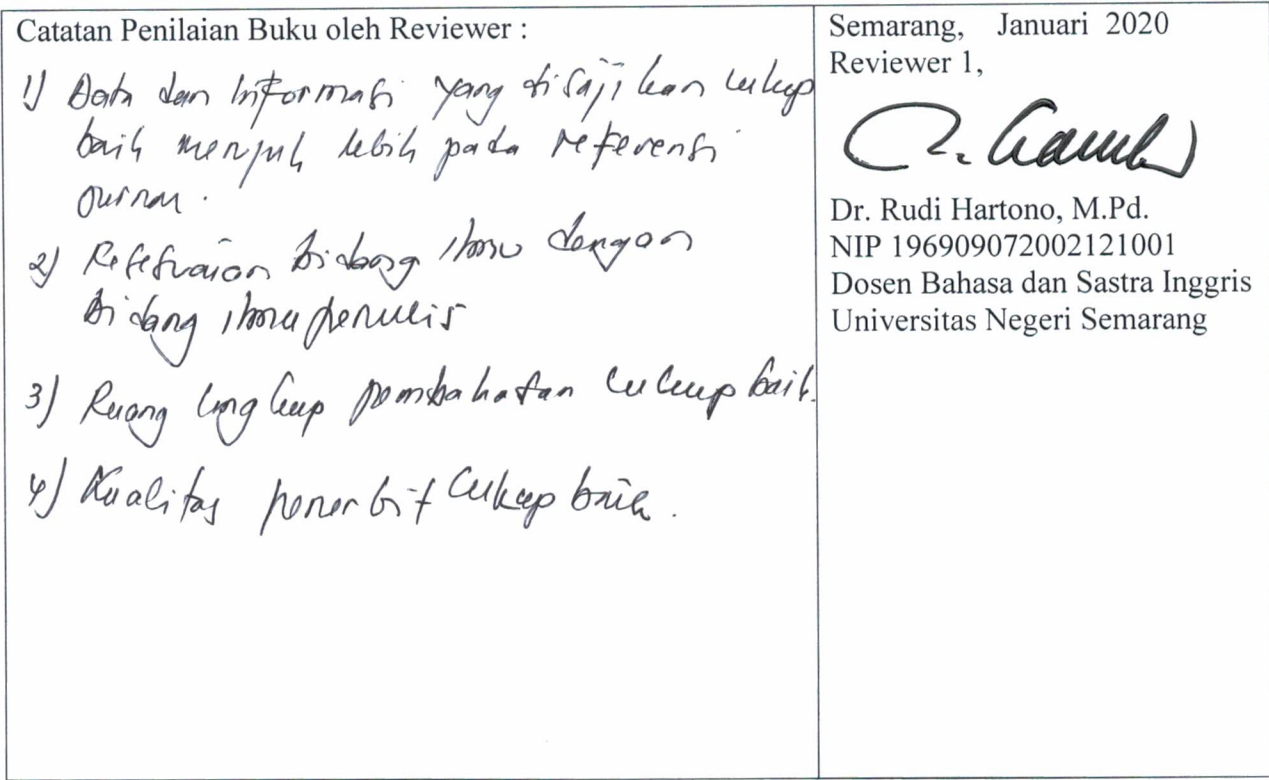 Catatan Penilaian Buku oleh Reviewer :
1) Data dan Informasi yang disajikan cukup
baik lebih pada referensi
2) bidang ilmu dengan
bidang ilmu penulis
3) Ruang lingkup pembahasan cukup baik.
4) Kualitas penerbit cukup baik.
Semarang, Januari 2020
Reviewer 1,
Dr. Rudi Hartono, M.Pd.
NIP 196909072002121001
Dosen Bahasa dan Sastra Inggris
Universitas Negeri Semarang